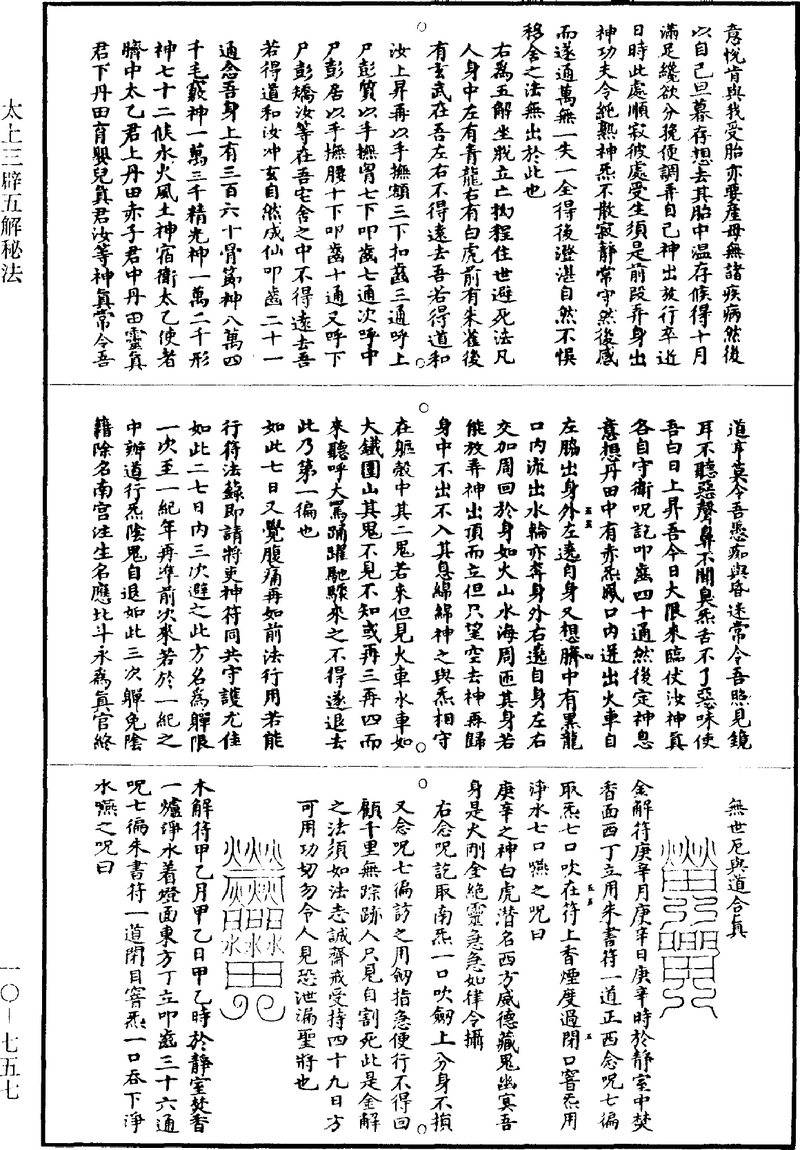 意悅肯與我受胎亦要產母無諸疾病然後
以自己旦暮存想去其胎中温存候得十月
滿足纔欲分挽便調弄自己神出放行卒近
日時此處順寂彼處受生須是前段弃身出
神功夫令純熟神炁不散寂靜常守然後感
而遂通萬無一失一全得後澄湛自然不悞
移舍之法無出於此也
右為五解坐戕立亡拘程住世避死法凡
人身中左有青龍右有白虎前有朱雀後
有玄武在吾左右不得遠去吾若得道和
汝上昇再以手撫額三下扣齒三通呼上
尸彭質以手撫胷七下叩齒七通次呼中
尸彭居以手撫腰十下叩齒十通又呼下
尸彭矯汝等在吾宅舍之中不得遠去吾
若得道和汝冲玄自然成仙叩齒二十一
通念吾身上有三百六十骨節神八萬四
千毛竅神一萬三千精光神一萬二千形
神七十二候水火風土神宿衛太乙使者
臍中太乙君上丹田赤子君中丹田靈真
君下丹田育嬰兒真君汝等神真常令吾
道亨莫令吾愚痴與昏迷常令吾照見鏡
耳不聽惡聲鼻不聞臭炁舌不了惡味使
吾白日上昇吾今日大限來臨仗汝神真
各自守衛呪訖叩齒四十通然後定神息
意想丹田中有赤炁風口內迸出火車自
左脇出身外左遶自身又想臍中有黑龍
口內流出水輪亦奔身外右遶自身左右
交加周回於身如火山水海周匝其身若
能放弄神出頂而立但只望空去神再歸
身中不出不入其息綿綿神之與炁相守
在軀殼中其二鬼若來但見火車水車如
大鐵圍山其鬼不見不知或再三再四而
來聽呼大罵踊躍馳驟來之不得遂退去
此乃第一徧也
如此七日又覺腹痛再如前法行用若能
行符法籙即請將吏神符同共守護尤佳
如此二七日內三次避之此方名為軃限
一次至一紀年再準前次來若於一紀之
中辦道行炁陰鬼自退如此三次軃免陰
籍除名南宮注生名應北斗永為真官終
無世厄與道合真
金解符庚辛月庚辛日庚辛時於靜室中焚
香面西丁立用朱書符一道正西念呪七徧
取炁七口吹在符上香煙度過閉口窨炁用
淨水七口嚥之呪曰
庚辛之神白虎潛名西方威德藏鬼幽冥吾
身是大剛金絕靈急急如律令攝
右念呪訖取南炁一口吹劒上分身不損
又念呪七徧訪之用劒指急便行不得回
顧千里無踪跡人只見自割死此是金解
之法須如法志誠齋戒受持四十九日方
可用功切勿令人見恐泄漏聖將也
木解符甲乙月甲乙日甲乙時於靜室焚香
一爐淨水着燈面東方丁立叩齒三十六通
呪七徧朱書符一道閉目窨炁一口吞下淨
水嚥之呪曰
太上三辟五解秘法
一〇—七五七